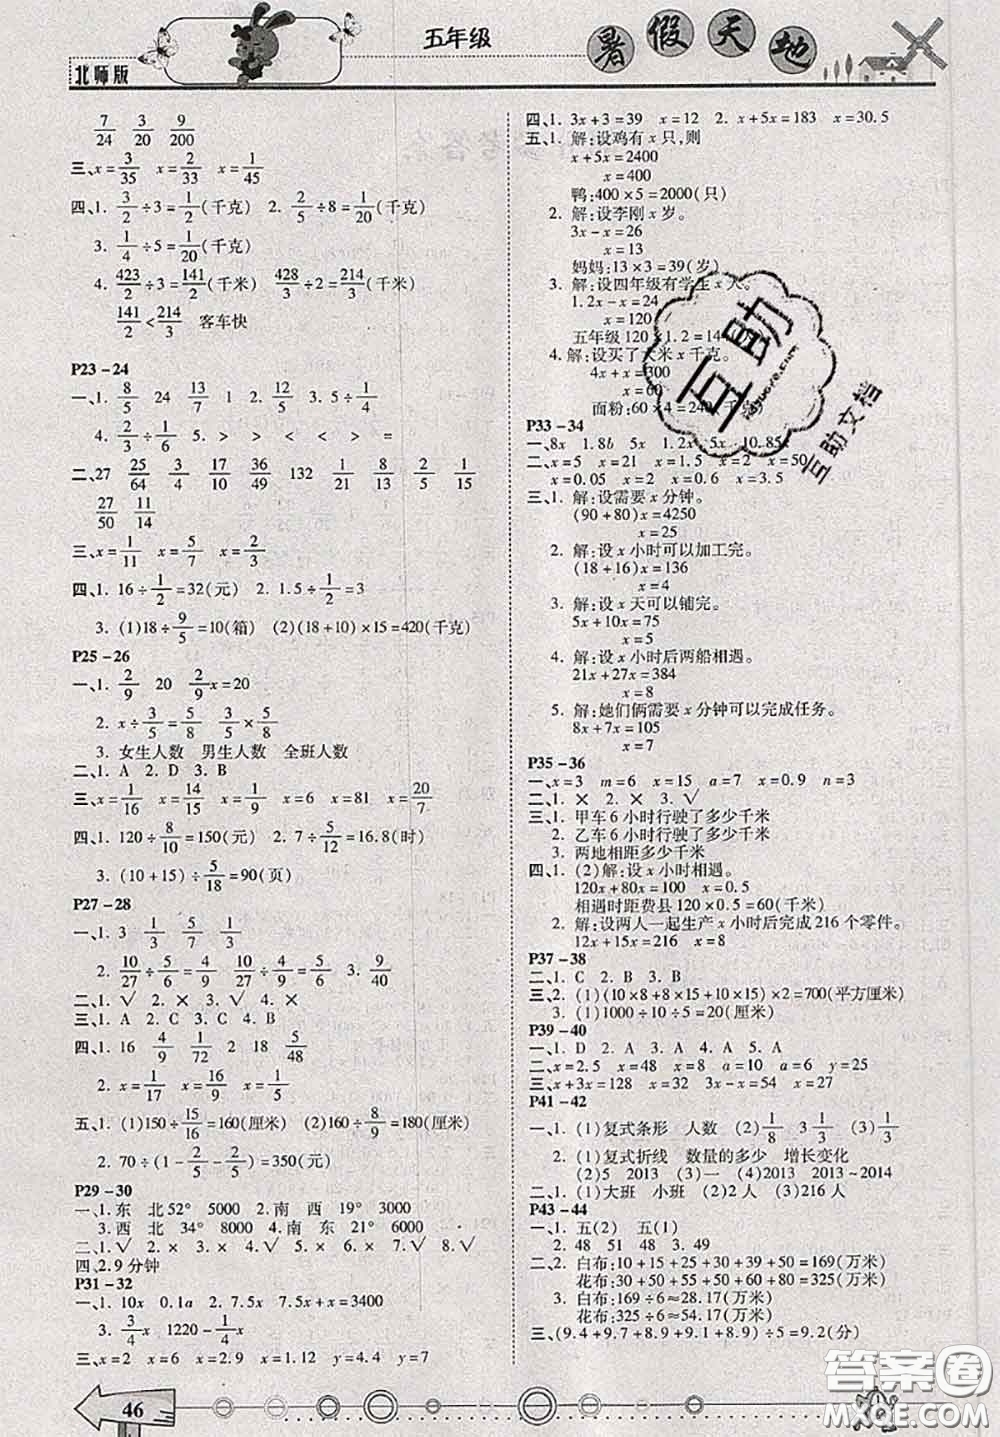 北师版
五年级
暑假天地
7/24 3/20 9/200
三、x=3/35 x=3/20 x=1/45
四、1. 3/2÷3=1/2(千克) 2. 2/5÷8=1/20(千克)
3. 1/4÷5=1/20(千克)
4. 423/2÷3=141/2(千米) 428/2÷2=214/3(千米)
141/2<214/3 客车快
P23-24
一、1. 8/5 24 13/7 1 2. 8/9 3. 3. 5÷1/2
4. 1/2 4/5 5. > < > < 6. 24
二、27 25/64 3/4 17/10 36/49 132 1/21 8/13 1/2
27/50 11/14
三、x=1/11 x=5/7 x=2/3
四、1. 16÷1/2=32(元) 2. 1.5÷1/2=3
3. (1)18÷9/5=10(箱) (2)(18+10)×15=420(千克)
P25-26
一、1. 2/9 20 2/9x=20
2. x÷3/5=5/8 3/5×5/8
3. 女生人数 男生人数 全班人数
二、1. A 2. D 3. B
三、x=1/16 x=14/15 x=1/9 x=6 x=81 x=20/7
四、1. 120÷8/10=150(元) 2. 7÷5/12=16.8(时)
3. (10+15)÷5/18=90(页)
P27-28
一、1. 3 1/3 5/7 1/3
2. 10/27÷5/6=4/9 10/27÷4/9=5/6 3. 9/40
二、1. √ 2. × 3. √
三、1. A 2. C 3. C 4. B
四、1. 16 4/9 1/72 2 18 5/48
2. x=1/17 x=16/9 x=1/5
五、1. (1)150÷15/16=160(厘米) (2)160÷8/9=180(厘米)
2. 70÷(1-2/5-2/5)=350(元)
P29-30
一、1.东 北52° 5000 2.南 西 19° 3000
3.西 北 34° 8000 4.南 东 21° 6000
二、1.√ 2.× 3.× 4.× 5.× 6.√ 7.√ 8.√
四、2.9 分钟
P31-32
一、1. 10x 0.1a 2. 7.5x 7.5x+x=3400
3. 3/4x 1220-1/4x
三、x=2 x=6 x=2.9 x=1.1 y=4 y=7
46
四、1. 3x+3=39 x=12 2. x+5x=183 x=30.5
五、1. 解:设鸡有x只,则
x+5x=2400
x=400
鸭:400×5=2000(只)
2. 解:设李刚x岁。
3x-x=26
x=13
妈妈:13×3=39(岁)
3. 解:设四年级有学生x人。
1.2x-x=24
x=120
五年级120×1.2=14
4. 解:设买了大米x千克。
4x+x=300
x=60
面粉:60×4=240(千克)
P33-34
一、8x 1.8b 5x 1.2x 5x 10.85x
二、x=5 x=21 x=1.5 x=2 x=50
x=0.05 x=2 x=0.6 x=3.5
三、1. 解:设需要x分钟。
(90+80)x=4250
x=25
2. 解:设x小时可以加工完。
(18+16)x=136
x=4
3. 解:设x天可以铺完。
5x+10x=75
x=5
4. 解:设x小时后两船相遇。
21x+27x=384
x=8
5. 解:她们俩需要x分钟可以完成任务。
8x+7x=105
x=7
P35-36
一、x=3 m=6 x=15 a=7 x=0.9 n=3
二、1. × 2. × 3. √
三、1. 甲车6小时行驶了多少千米
2. 乙车6小时行驶了多少千米
3. 两地相距多少千米
四、1. (2)解:设x小时相遇。
120x+80x=100 x=0.5
相遇时距费县120×0.5=60(千米)
2. 解:设两人一起生产x小时后完成216个零件。
12x+15x=216 x=8
P37-38
二、1. C 2. B 3. B
三、2. (1)(10×8+8×15+10×15)×2=700(平方厘米)
3. (1)1000÷10÷5=20(厘米)
P39-40
一、1. D 2. A 3. A 4. A 5. A
二、x=2.5 x=48 x=8 a=10 a=6 y=25
三、x+3x=128 x=32 3x-x=54 x=27
P41-42
一、1. (1)复式条形 人数 (2)1/8 3 1/3 (3)1/3
2. (1)复式折线 数量的多少 增长变化
(2)5 2013 (3)一 (4)2013 2013~2014
二、1. (1)大班 小班 (2)2 (3)212人
P43-44
一、1. 五(2) 五(1)
2. 48 51 48 3. 48.75
二、2. 白布:10+15+25+30+39+50=169(万米)
花布:30+50+55+50+60+80=325(万米)
3. 白布:169÷6≈28.17(万米)
花布:325÷6≈54.17(万米)
三、(9.4+9.7+9.1+8.9+8.9)÷5=9.2(分)
互助
互助文档
答案圈
MXQE.COM